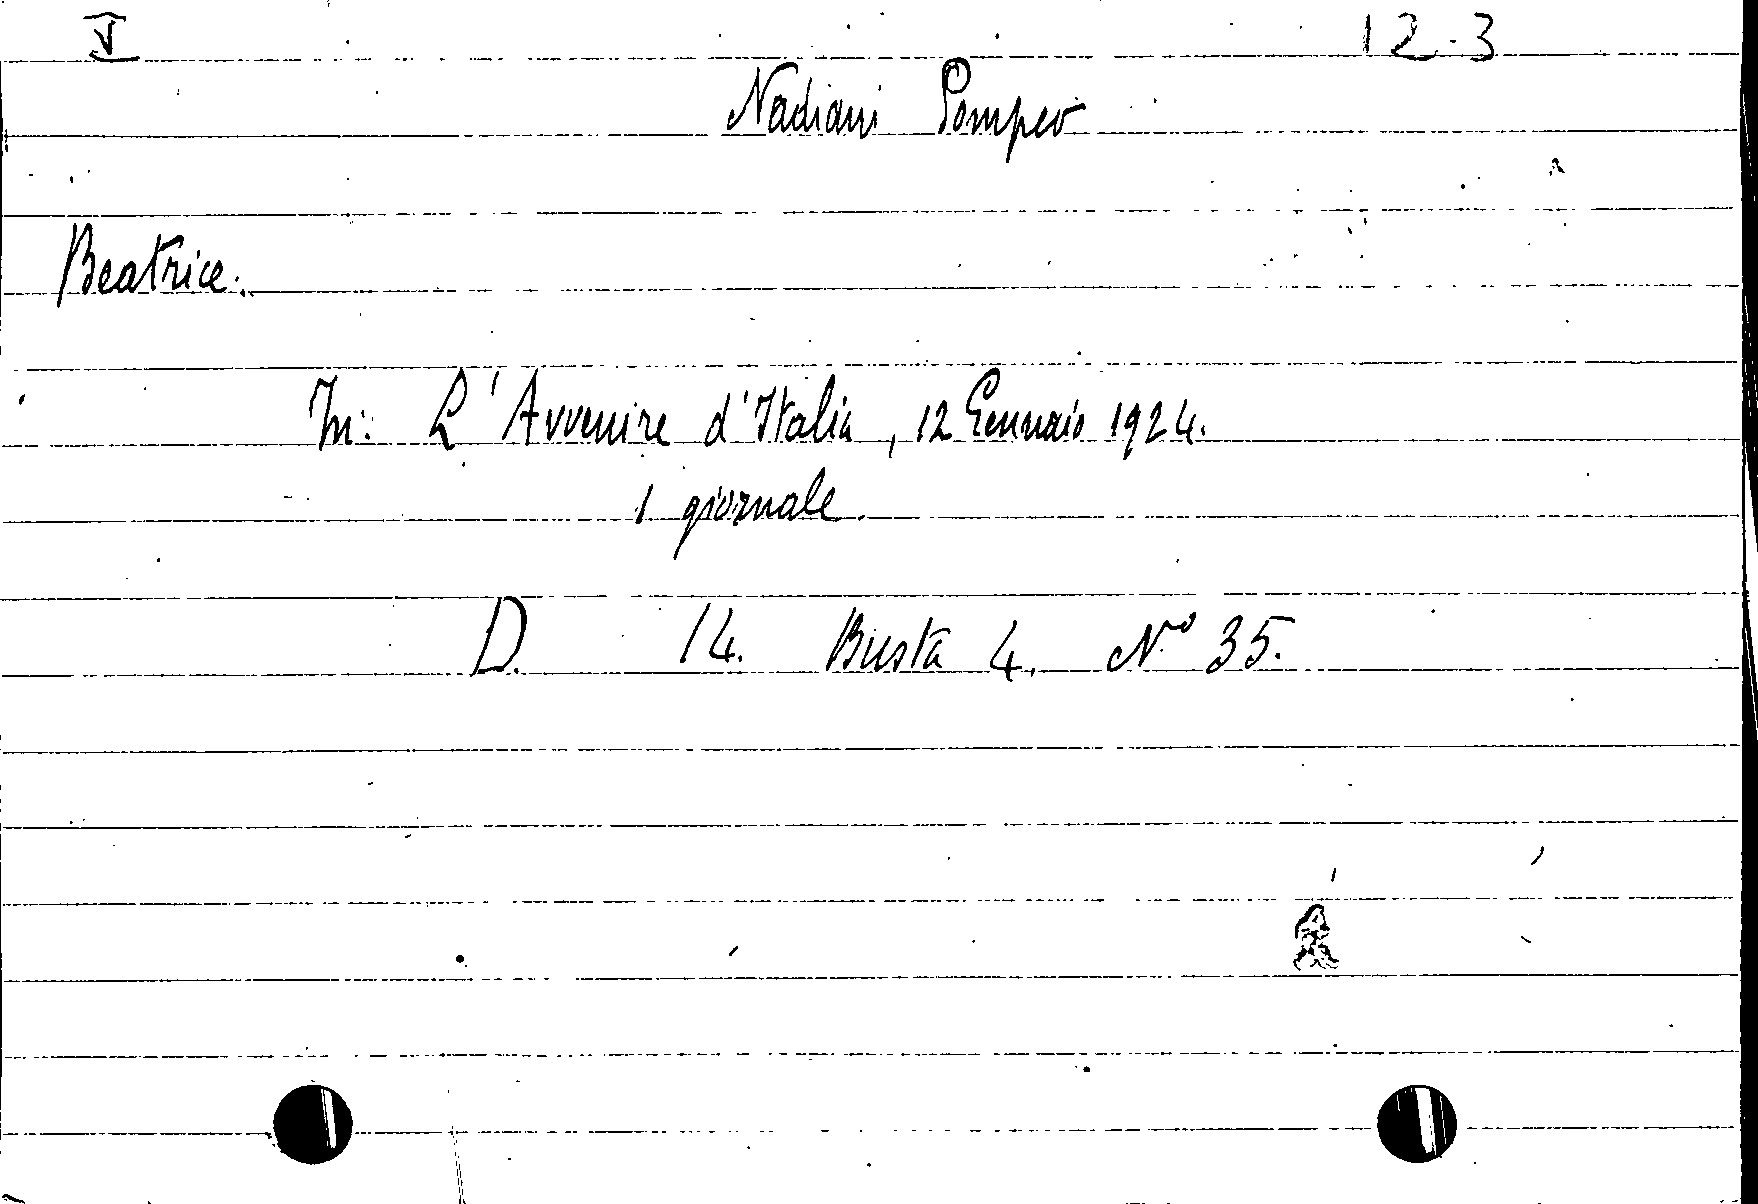 V 12-3
Nadiani Pompeo
Beatrice.
In: L'Avvenire d'Italia, 12 Gennaio 1924.
1 giornale.
D. 14. Busta 4. N° 35.